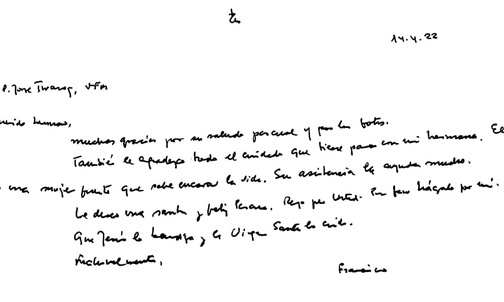 14.4.22
P. José
Querido hermano,
muchas gracias por su saludo pascual y por las fotos.
También le agradezco todo el cuidado que tiene para con mi hermana. El
una mujer fuerte que sabe encarar la vida. Su asistencia le ayuda mucho.
Le deseo una santa y feliz Pascua. Rezo por Usted. Por favor hágalo por mí.
Que Jesús lo bendiga y la Virgen Santa lo cuide.
Fraternalmente,
Francisco